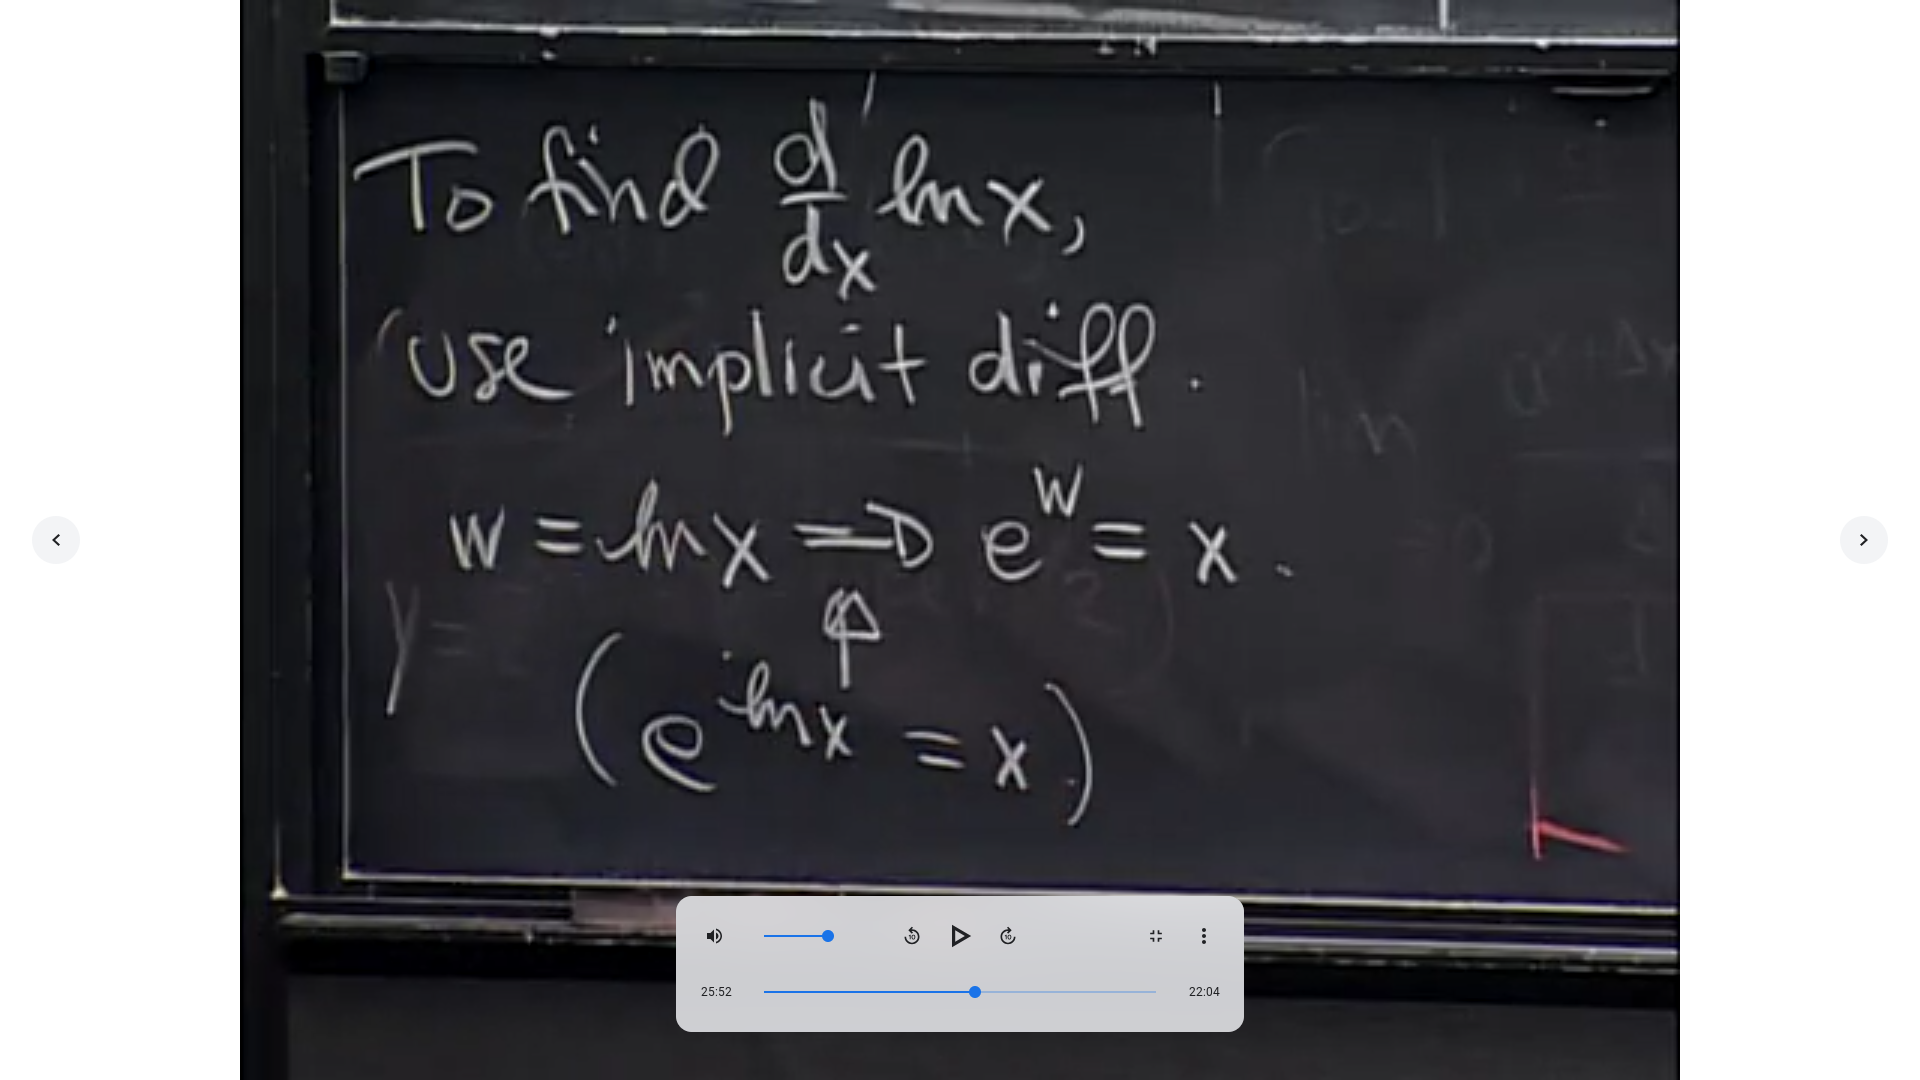 To find d/dx ln x,
use implicit diff.
w = ln x ⇒ e^w = x.
↑
(e^ln x = x)
y =
lim
25:52
22:04